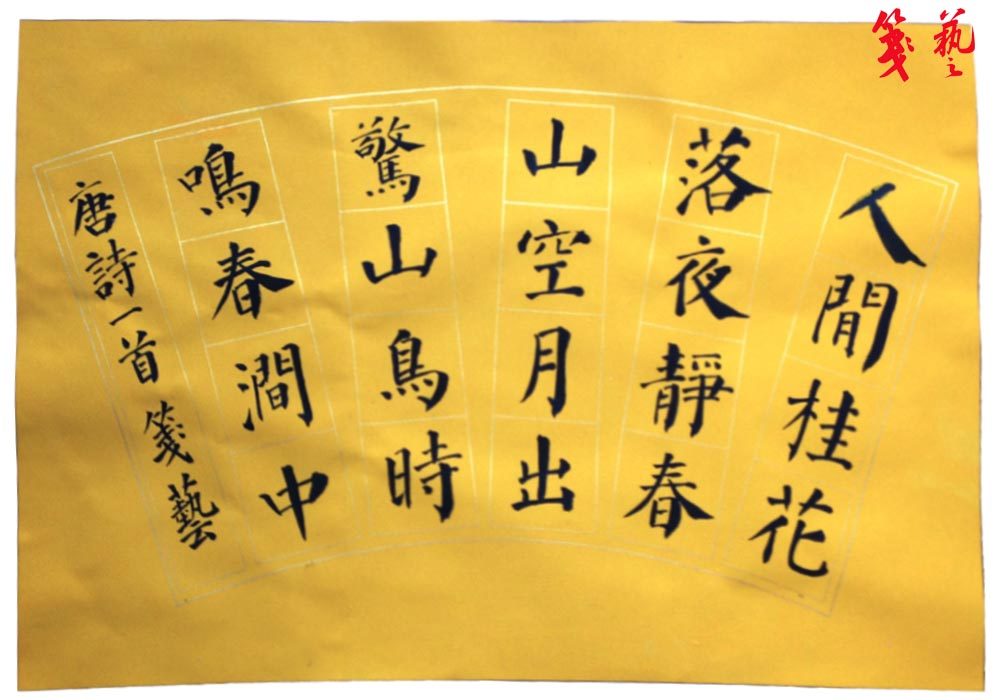 箋藝
人閒桂花
落夜靜春
山空月出
驚山鳥時
鳴春澗中
唐詩一首 箋藝